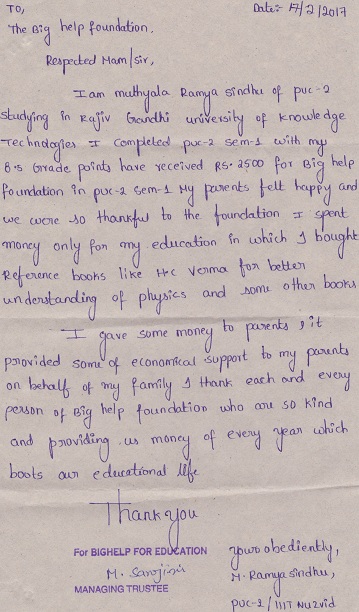 To,
Date:- 17/2/2017
The Big help foundation.
Respected Mam/sir,
I am muthyala Ramya sindhu of puc-2
studying in Rajiv Gandhi university of knowledge
Technologies I completed puc-2 sem-1 with my
8.5 Grade points have received RS. 2500 for Big help
foundation in puc-2 sem-1 My parents felt happy and
we were so thankful to the foundation I spent
money only for my education in which I bought
Reference books like Hc Verma for better
understanding of physics and some other books
I gave some money to parents, it
provided some of economical support to my parents
on behalf of my family I thank each and every
person of Big help foundation who are so kind
and providing us money of every year which
boots our educational life
Thank you
For BIGHELP FOR EDUCATION
M. Sarojini
MANAGING TRUSTEE
yours obediently,
M. Ramya sindhu,
puc-2/IIIT Nuzvid